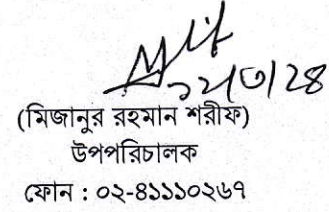 ১২/৩/২৪
(মিজানুর রহমান শরীফ)
উপপরিচালক
ফোন : ০২-৪১১১০২৬৭